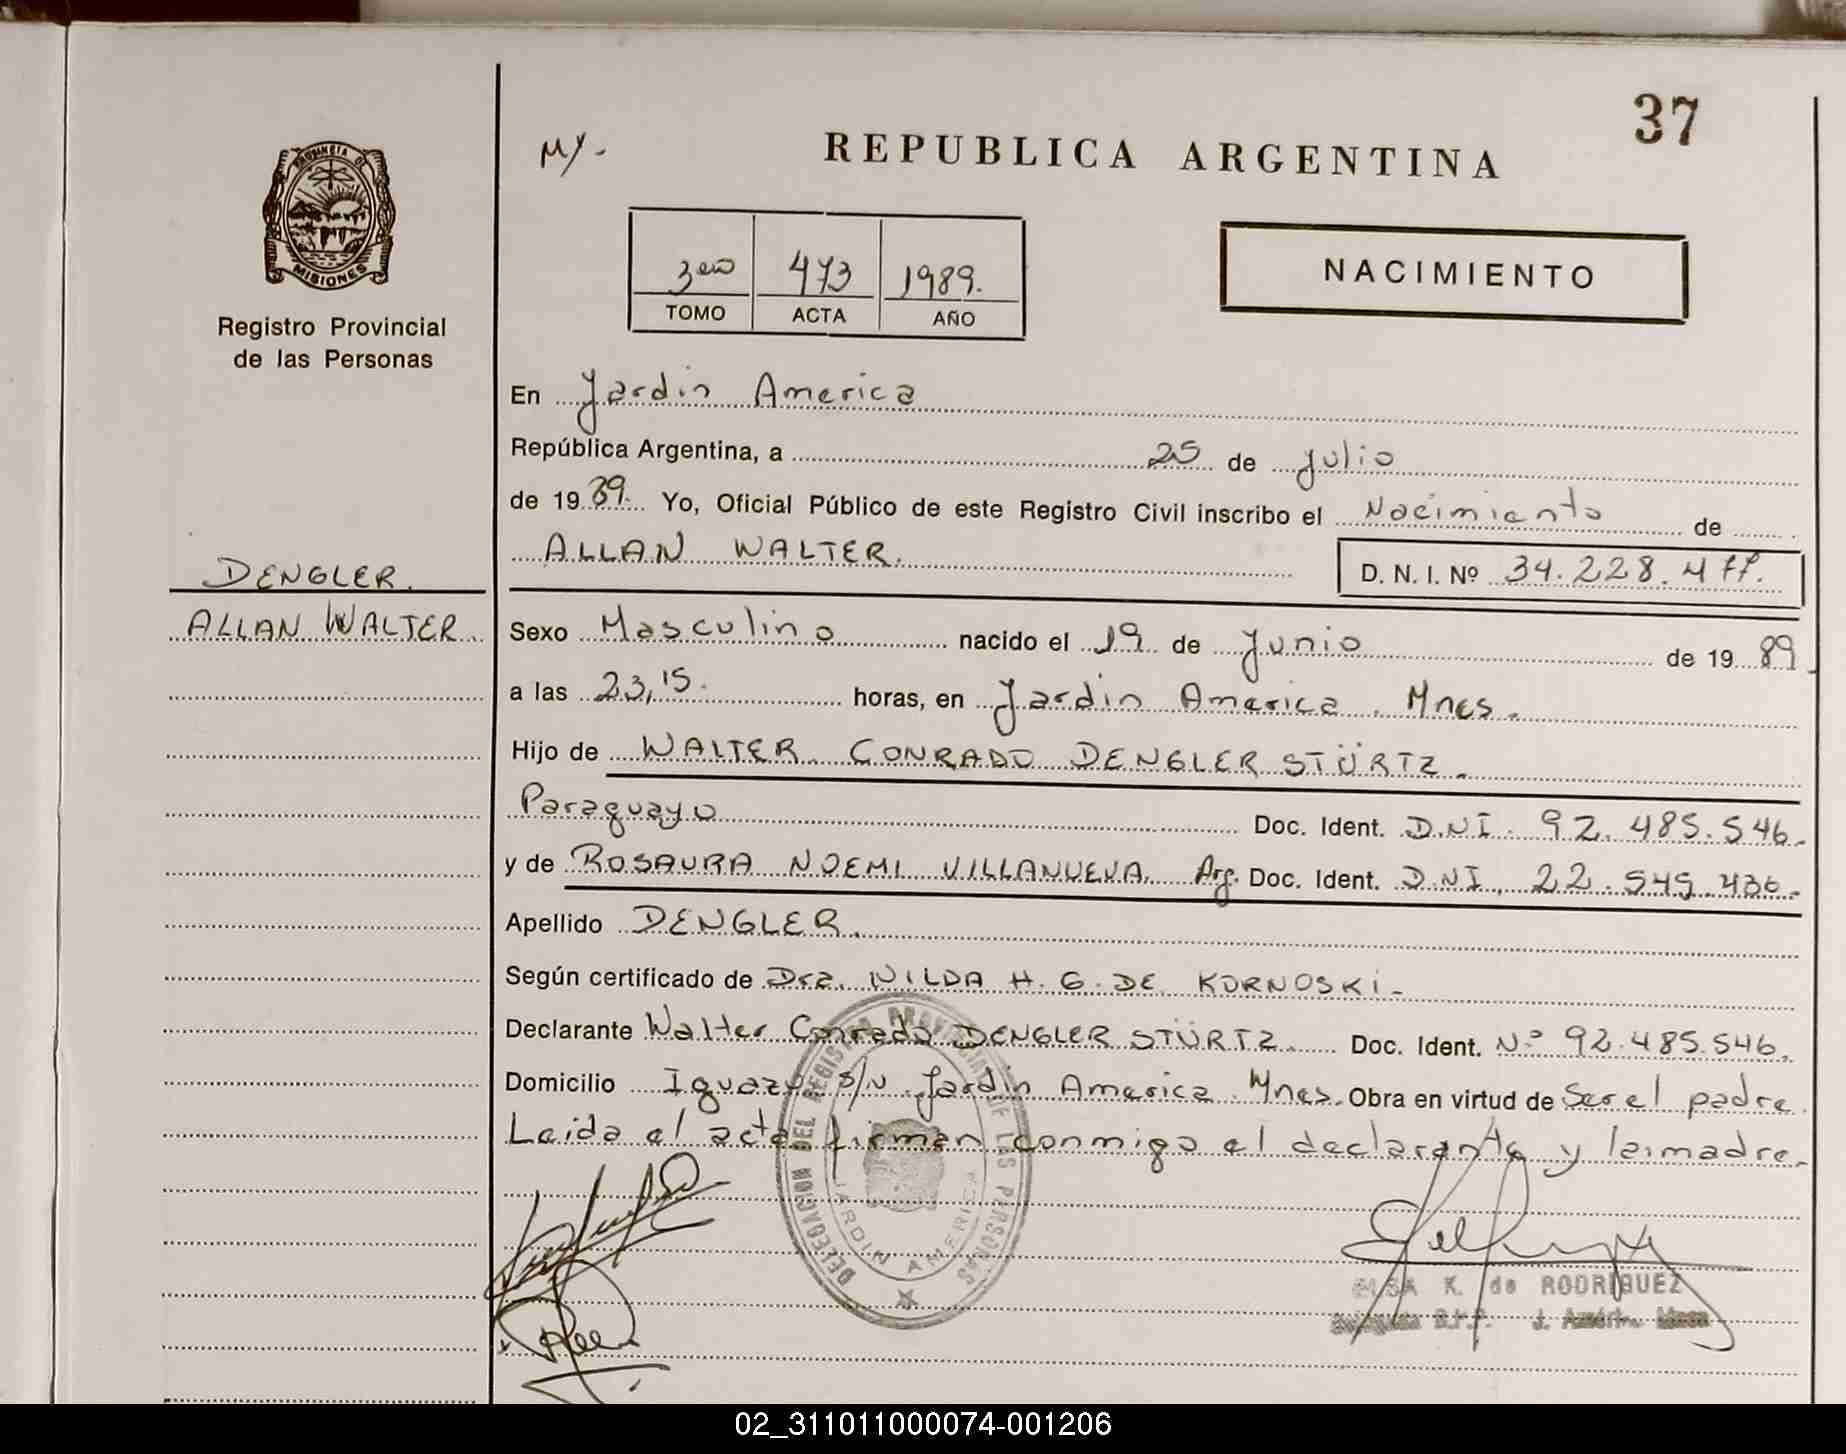 37
MY.
REPUBLICA ARGENTINA
PROVINCIA DE
MISIONES
Registro Provincial
de las Personas
3ero 473 1989.
TOMO ACTA AÑO
NACIMIENTO
En Jardin America
República Argentina, a 25 de Julio
de 1989. Yo, Oficial Público de este Registro Civil inscribo el Nacimiento de
ALLAN WALTER.
D. N. I. Nº 34.228.4
DENGLER.
ALLAN WALTER
Sexo Masculino nacido el 19 de Junio de 1989.
a las 23,15. horas, en Jardin America. Mnes.
Hijo de WALTER CONRADO DENGLER STÜRTZ.
Paraguayo Doc. Ident. D.N.I. 92.485.546.
y de ROSAURA NOEMI VILLANUEVA. Arg. Doc. Ident. D.N.I. 22.549.436.
Apellido DENGLER.
Según certificado de Dra. NILDA H. G. DE KORNOSKI.
Declarante Walter Conrado DENGLER STÜRTZ. Doc. Ident. Nº 92.485.546.
Domicilio Iguazu s/n Jardin America. Mnes. Obra en virtud de Ser el padre.
Leida el acta firman conmigo el declarante y la madre.
DELEGACION DEL REGISTRO PROVINCIAL DE LAS PERSONAS
JARDIN AMERICA
ELSA K. de RODRIGUEZ
J. América
02_311011000074-001206